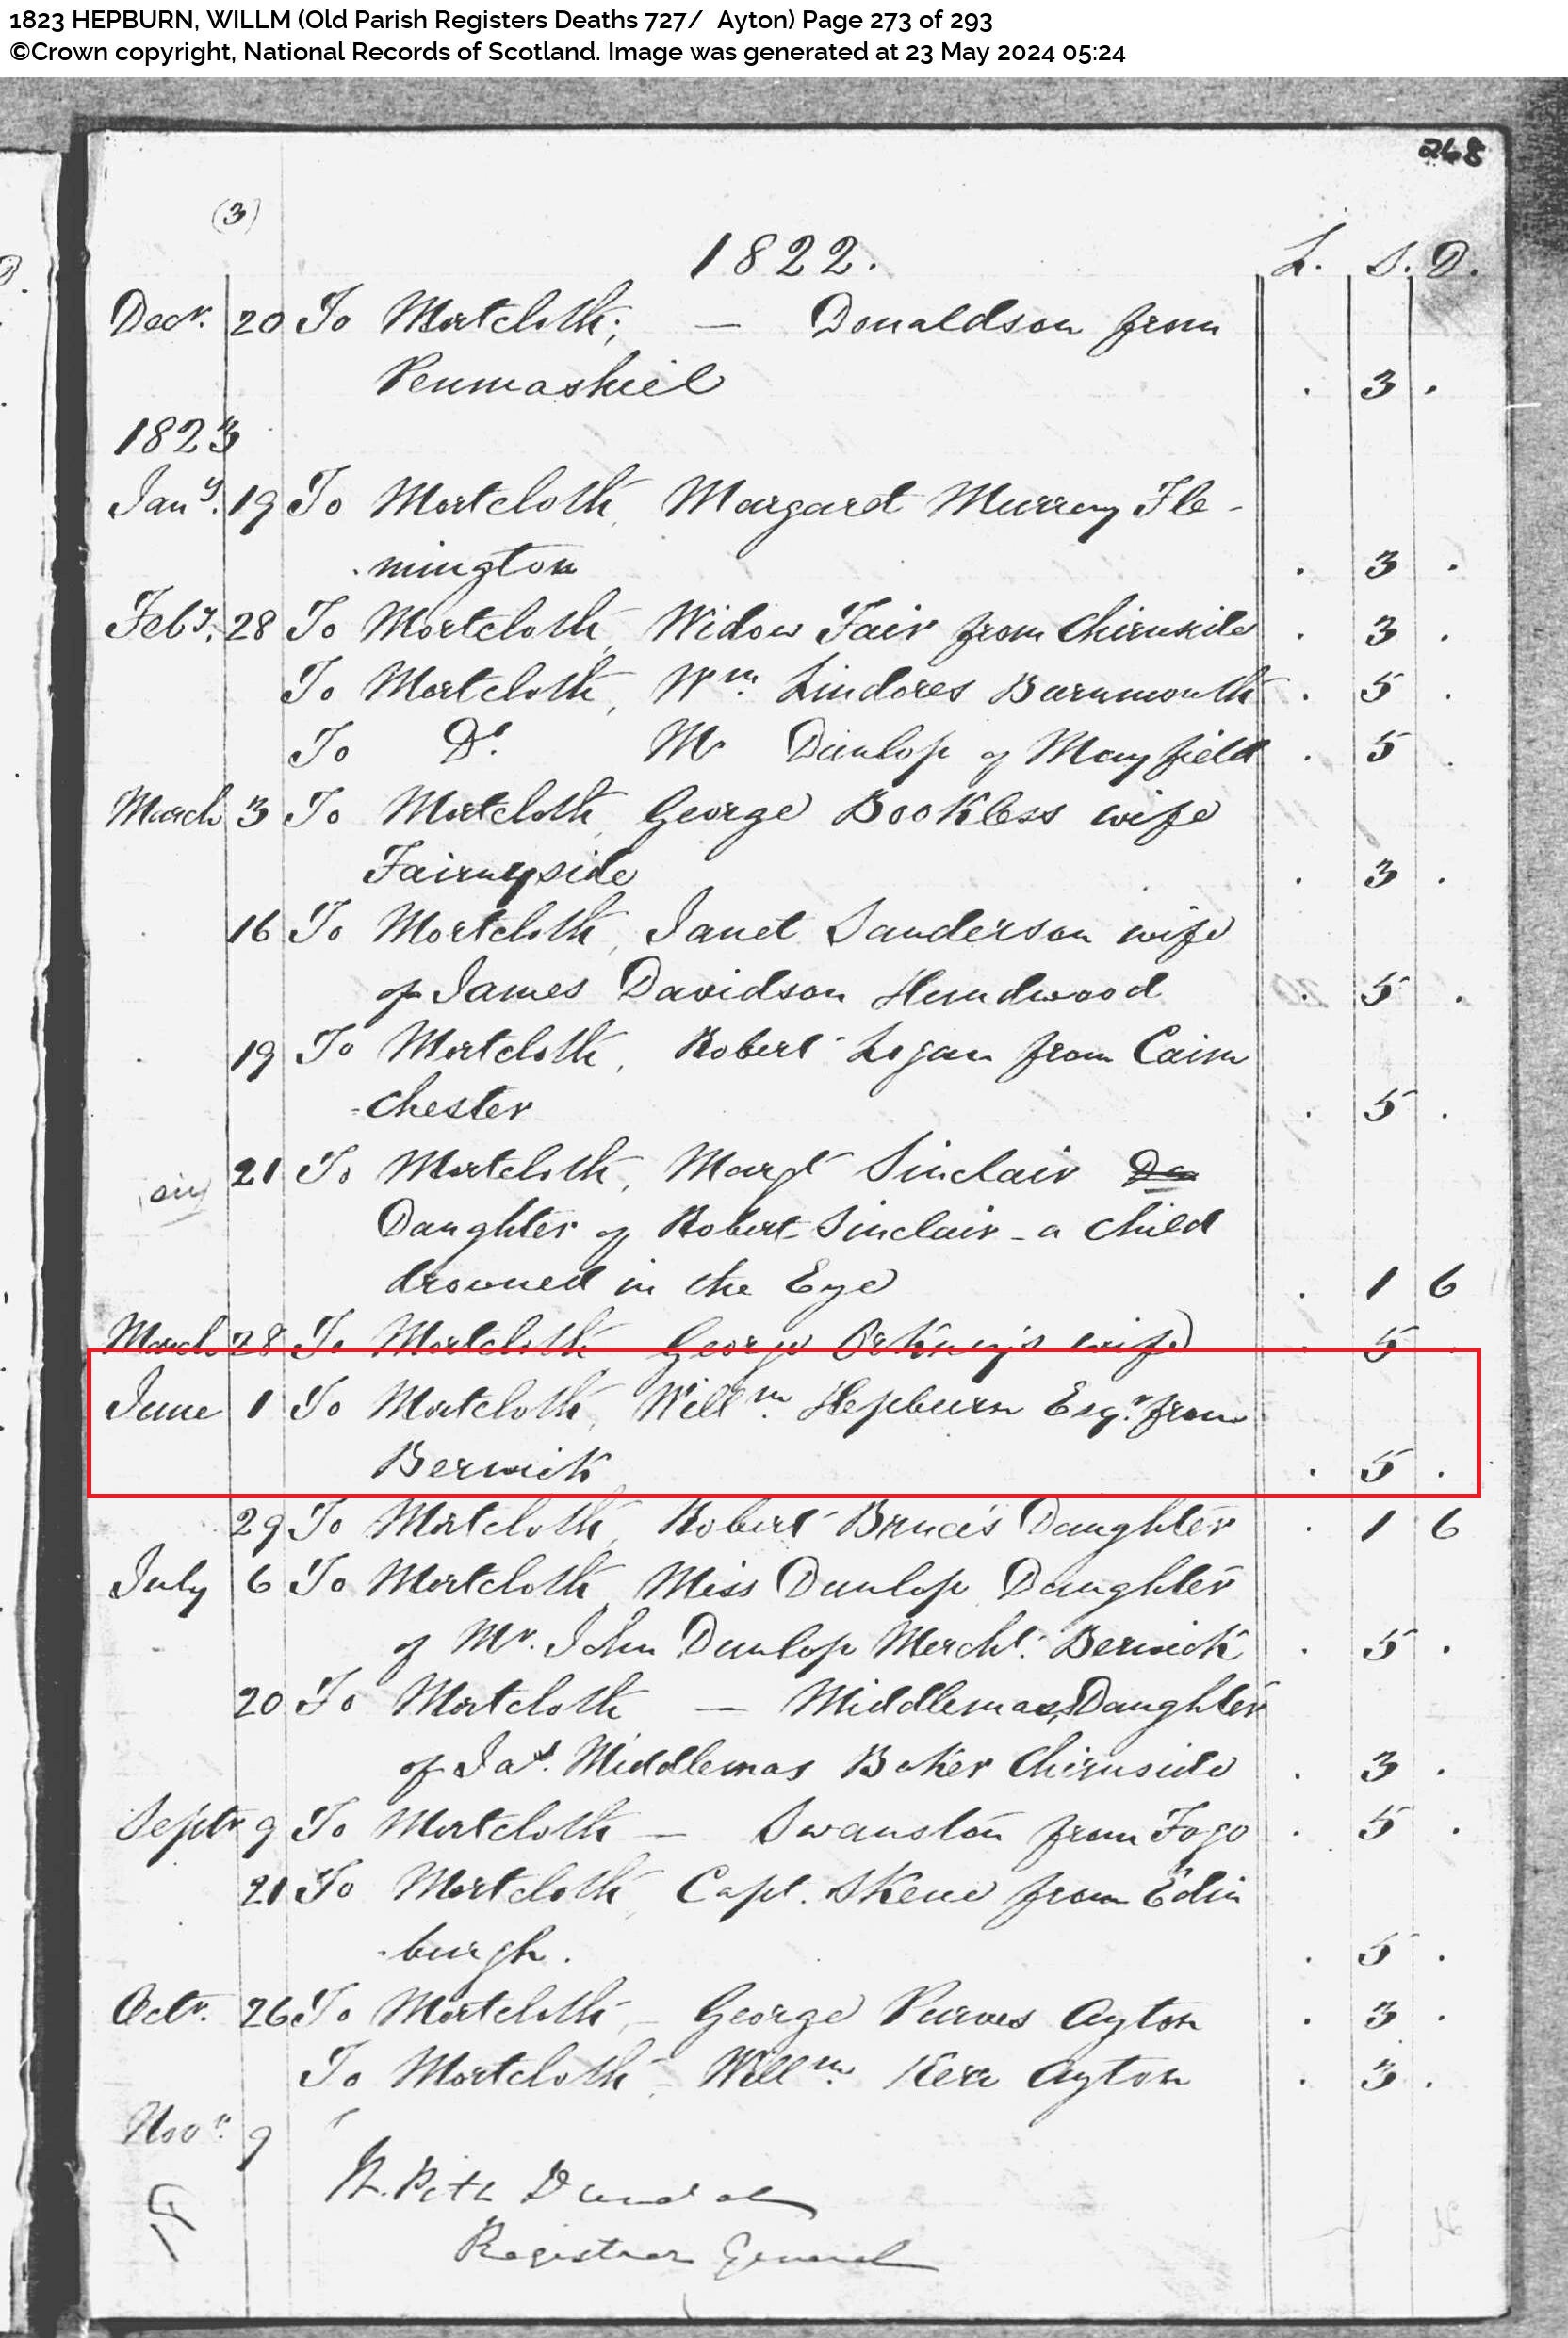 1823 HEPBURN, WILLM (Old Parish Registers Deaths 727/ Ayton) Page 273 of 293
©Crown copyright, National Records of Scotland. Image was generated at 23 May 2024 05:24
268
(3)
1822. L. S. D.
Decr. 20 To Mortcloth; — Donaldson from
Penmashiel . 3 .
1823
Jany. 19 To Mortcloth, Margaret Murray Fle-
-mington . 3 .
Feby. 28 To Mortcloth, Widow Fair from Chirnside . 3 .
To Mortcloth, Wm. Lindores Burnmouth . 5 .
To Do. Mr Dunlop of Mayfield . 5 .
March 3 To Mortcloth, George Bookless wife
Fairnyside . 3 .
16 To Mortcloth, Janet Sanderson wife
of James Davidson Hundwood . 5 .
19 To Mortcloth, Robert Logan from Cairn
-chester . 5 .
21 To Mortcloth, Margt Sinclair Da
Daughter of Robert Sinclair - a child
drowned in the Eye . 1 6
March 28 To Mortcloth George Orkney's wife . 5 .
June 1 To Mortcloth, Willm. Hepburn Esqr. from
Berwick . 5 .
29 To Mortcloth, Robert Bruce's Daughter . 1 6
July 6 To Mortcloth, Miss Dunlop Daughter
of Mr. John Dunlop Mercht. Berwick . 5 .
20 To Mortcloth — Middlemas, Daughter
of Jas. Middlemas Baker Chirnside . 3 .
Septr 9 To Mortcloth — Swanston from Fogo . 5 .
21 To Mortcloth, Capt. Skene from Edin
-burgh. . 5 .
Octr. 26 To Mortcloth, - George Purves Ayton . 3 .
To Mortcloth, - Willm. Kerr Ayton . 3 .
Novr. 9
W. Pitt Dundas
Registrar General